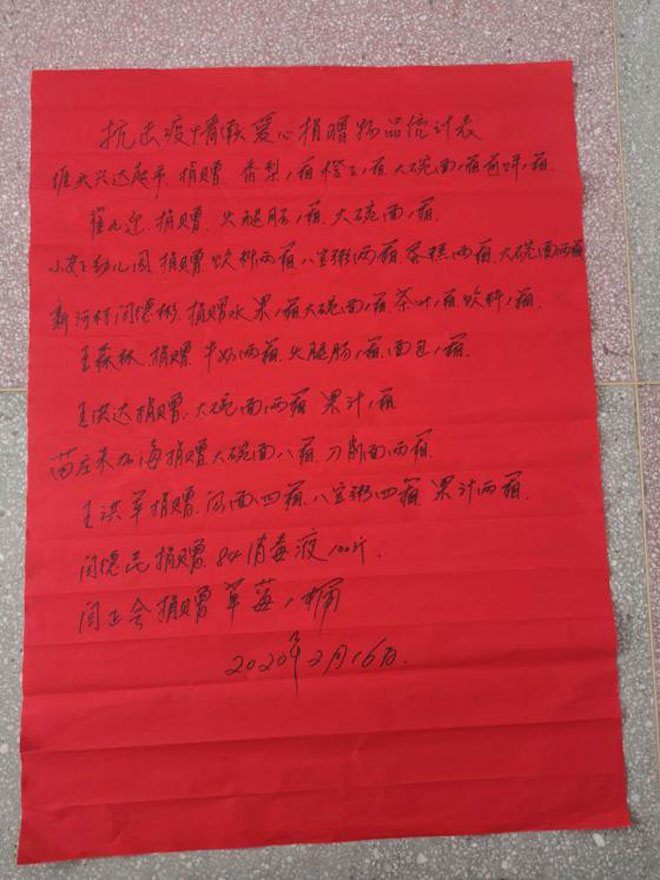 抗击疫情献爱心捐赠物品统计表
兴达超市捐赠香梨1箱橙子1箱大碗面1箱煎饼1箱
崔九迎.捐赠.火腿肠1箱.大碗面1箱.
幼儿园捐赠饮料两箱.八宝粥两箱.蛋糕两箱.大碗面两箱
新河村闫德彬.捐赠水果1箱大碗面1箱.茶叶1箱.饮料1箱.
王森林.捐赠.牛奶两箱.火腿肠1箱.面包1箱.
王洪达捐赠.大碗面两箱 果汁1箱
苗庄朱海捐赠大碗面八箱.刀削面两箱.
王洪军捐赠.面四箱.八宝粥四箱.果汁两箱.
闫德民捐赠.84消毒液100斤.
闫正会捐赠草莓1桶
2020年2月16日.